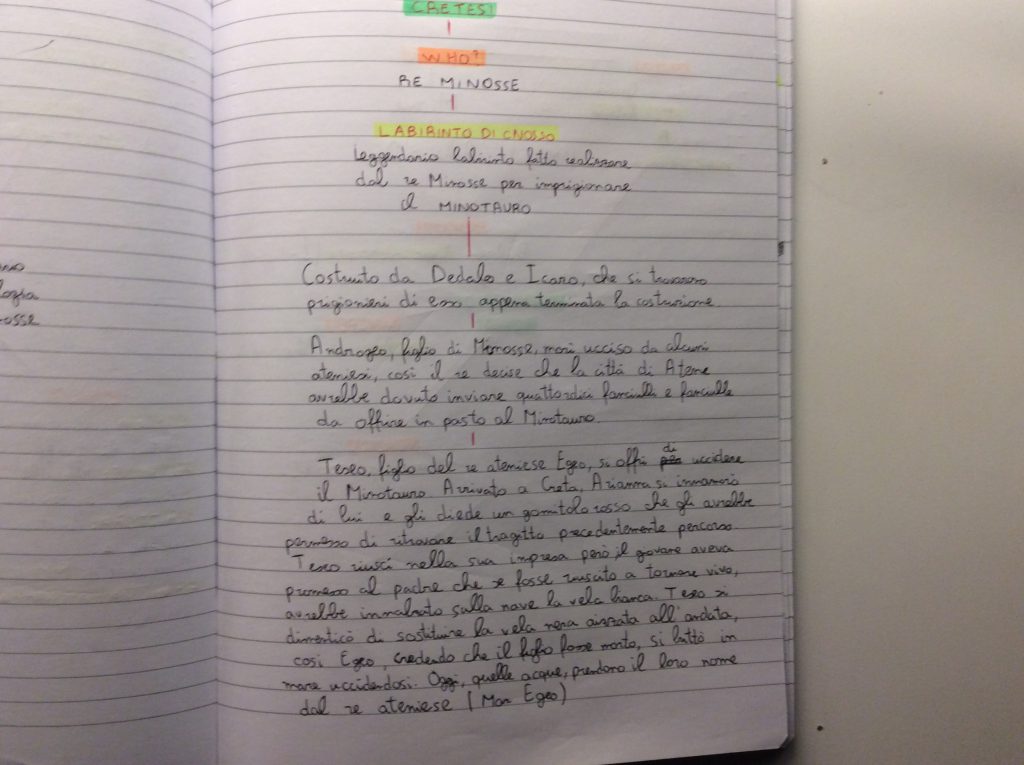 CRETESI
WHO?
RE MINOSSE
LABIRINTO DI CNOSSO
Leggendario labirinto fatto realizzare
dal re Minosse per imprigionare
il MINOTAURO
Costruito da Dedalo e Icaro, che si trovarono
prigionieri di esso appena terminata la costruzione.
Androgeo, figlio di Minosse, morì ucciso da alcuni
ateniesi, così il re decise che la città di Atene
avrebbe dovuto inviare quattordici fanciulli e fanciulle
da offrire in pasto al Minotauro.
Teseo, figlio del re ateniese Egeo, si offrì di uccidere
il Minotauro Arrivato a Creta, Arianna si innamorò
di lui e gli diede un gomitolo rosso che gli avrebbe
permesso di ritrovare il tragitto precedentemente percorso
Teseo riuscì nella sua impresa però il giovane aveva
promesso al padre che se fosse riuscito a tornare vivo,
avrebbe innalzato sulla nave la vela bianca. Teseo si
dimenticò di sostituire la vela nera issata all'andata,
così Egeo, credendo che il figlio fosse morto, si buttò in
mare uccidendosi. Oggi, quelle acque, prendono il loro nome
dal re ateniese (Mar Egeo)
ologia
nosse